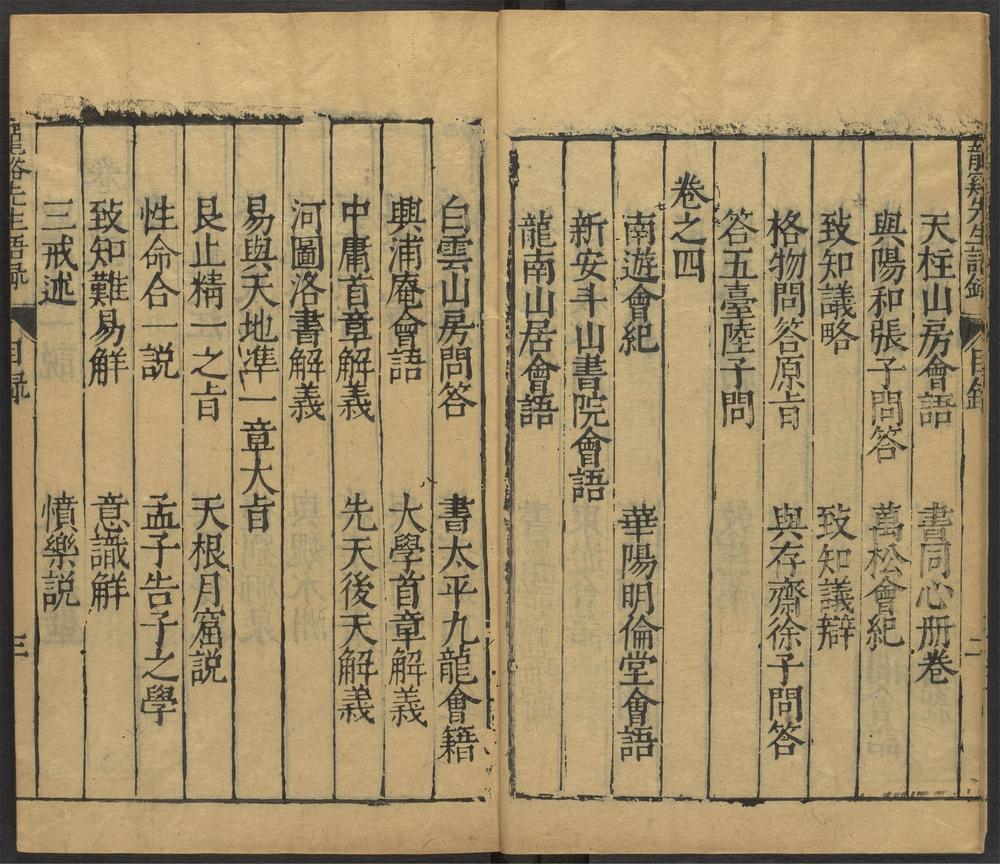 龍谿先生語錄 目錄 二
天柱山房會語 書同心册卷
與陽和張子問答 萬松會紀
致知議略 致知議辯
格物問答原旨 與存齋徐子問答
答五臺陸子問
卷之四
南遊會紀 華陽明倫堂會語
新安斗山書院會語
龍南山居會語
白雲山房問答 書太平九龍會籍
興浦庵會語 大學首章解義
中庸首章解義 先天後天解義
河圖洛書解義
易與天地準一章大旨
艮止精一之旨 天根月窟説
性命合一説 孟子告子之學
致知難易解 意識解
三戒述 憤樂説
龍谿先生語錄 目錄 三